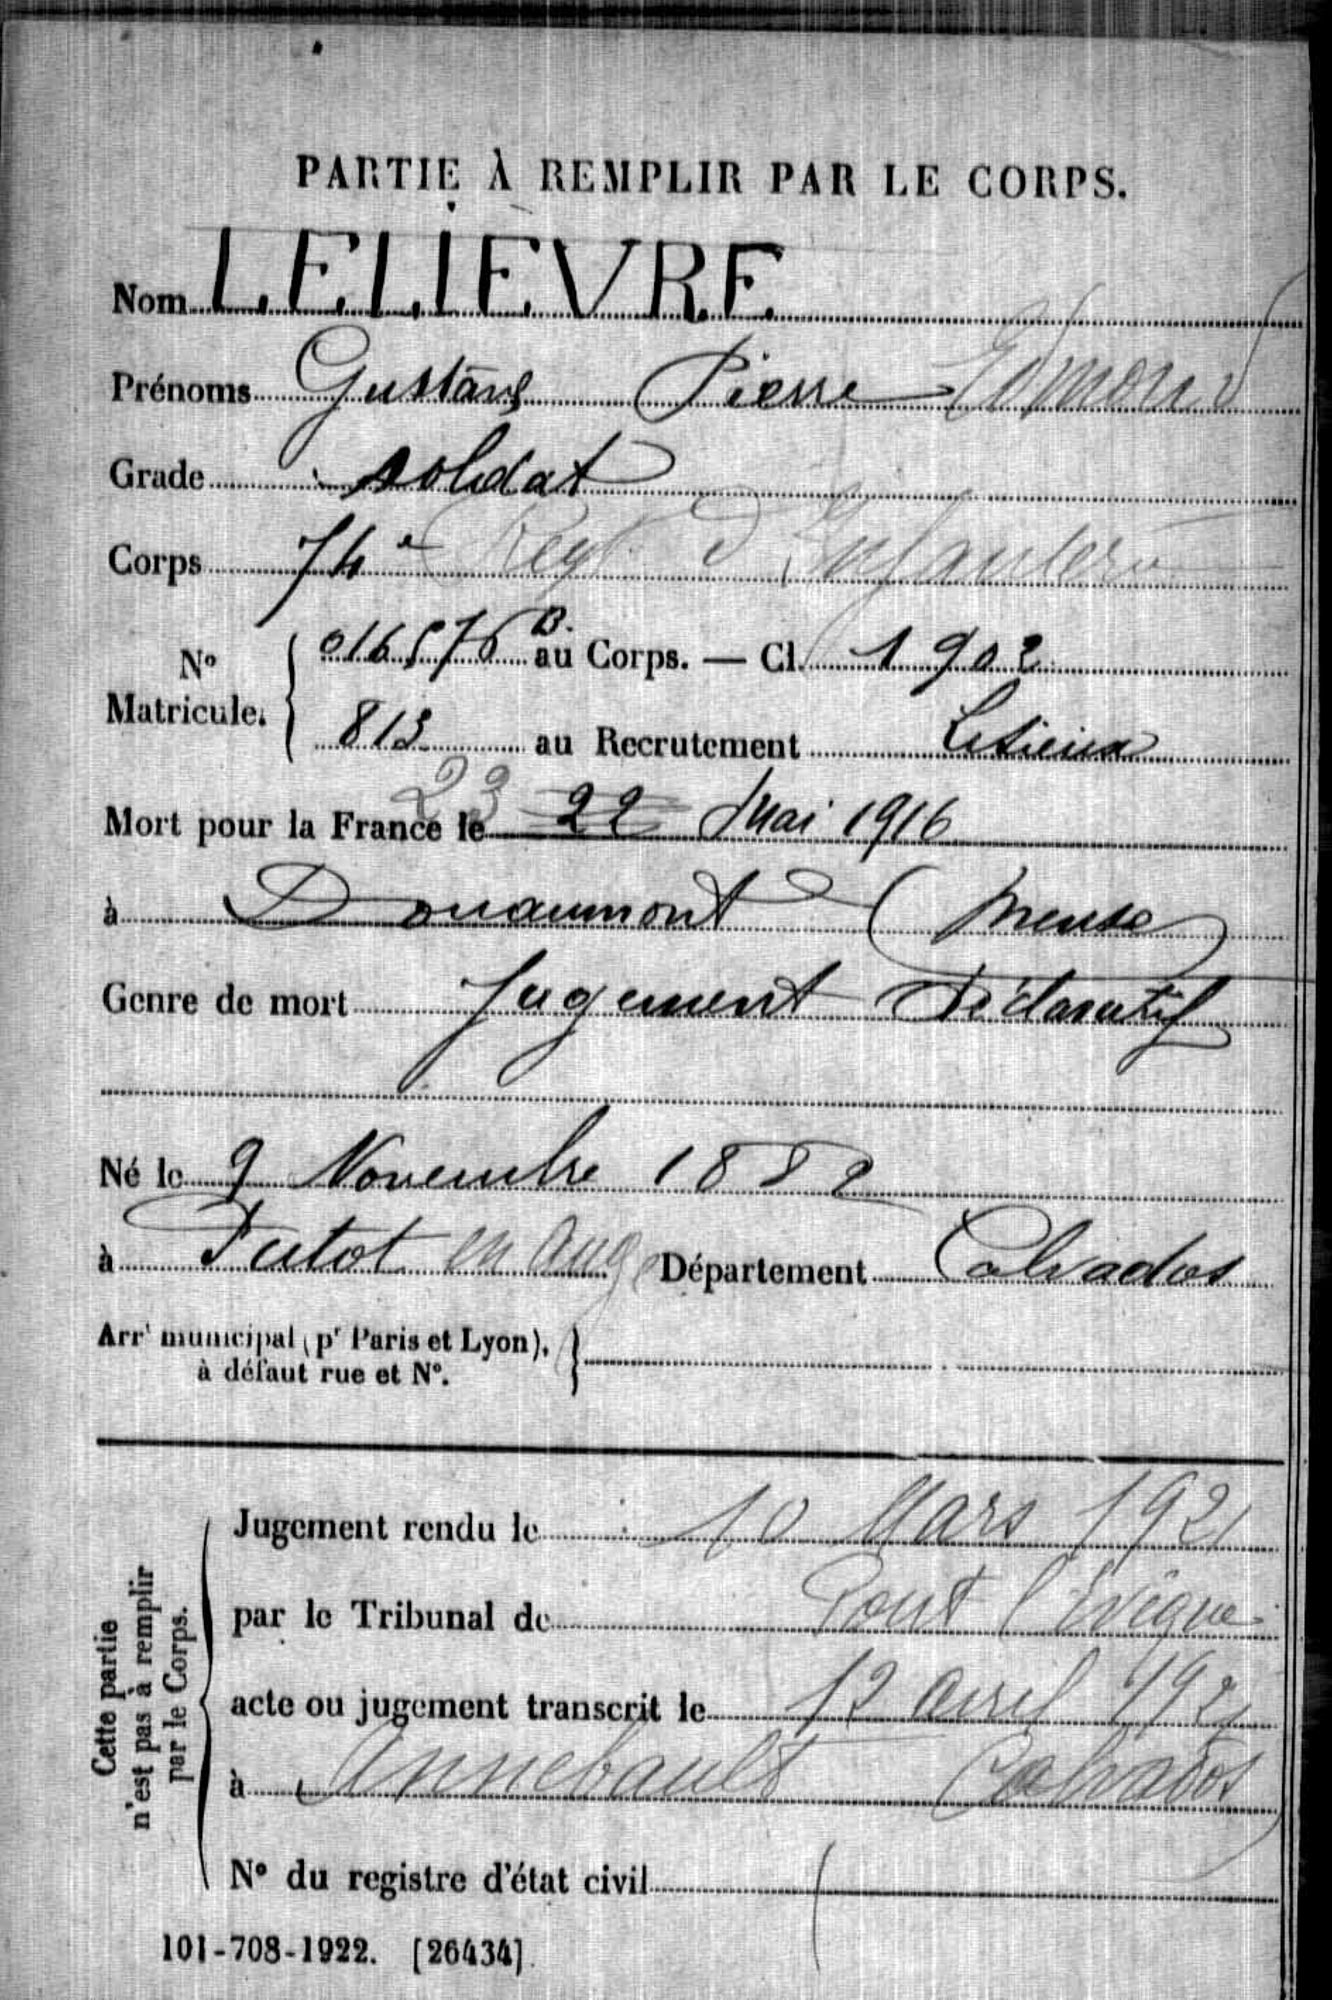 PARTIE À REMPLIR PAR LE CORPS.
Nom LELIÈVRE
Prénoms Gustave Pierre Edmond
Grade soldat
Corps 74e Regt d'Infanterie
No Matricule. 016576 B. au Corps. — Cl. 1902
813 au Recrutement Lisieux
Mort pour la France le 23 22 Mai 1916
à Douaumont (Meuse)
Genre de mort Jugement Déclaratif
Né le 9 Novembre 1882
à Putot en Auge Département Calvados
Arrt municipal (pr Paris et Lyon),
à défaut rue et N°.
Cette partie
n'est pas à remplir
par le Corps.
Jugement rendu le 10 Mars 1921
par le Tribunal de Pont l'Evêque
acte ou jugement transcrit le 12 avril 1921
à Annebault Calvados
N° du registre d'état civil
101-708-1922. [26434]